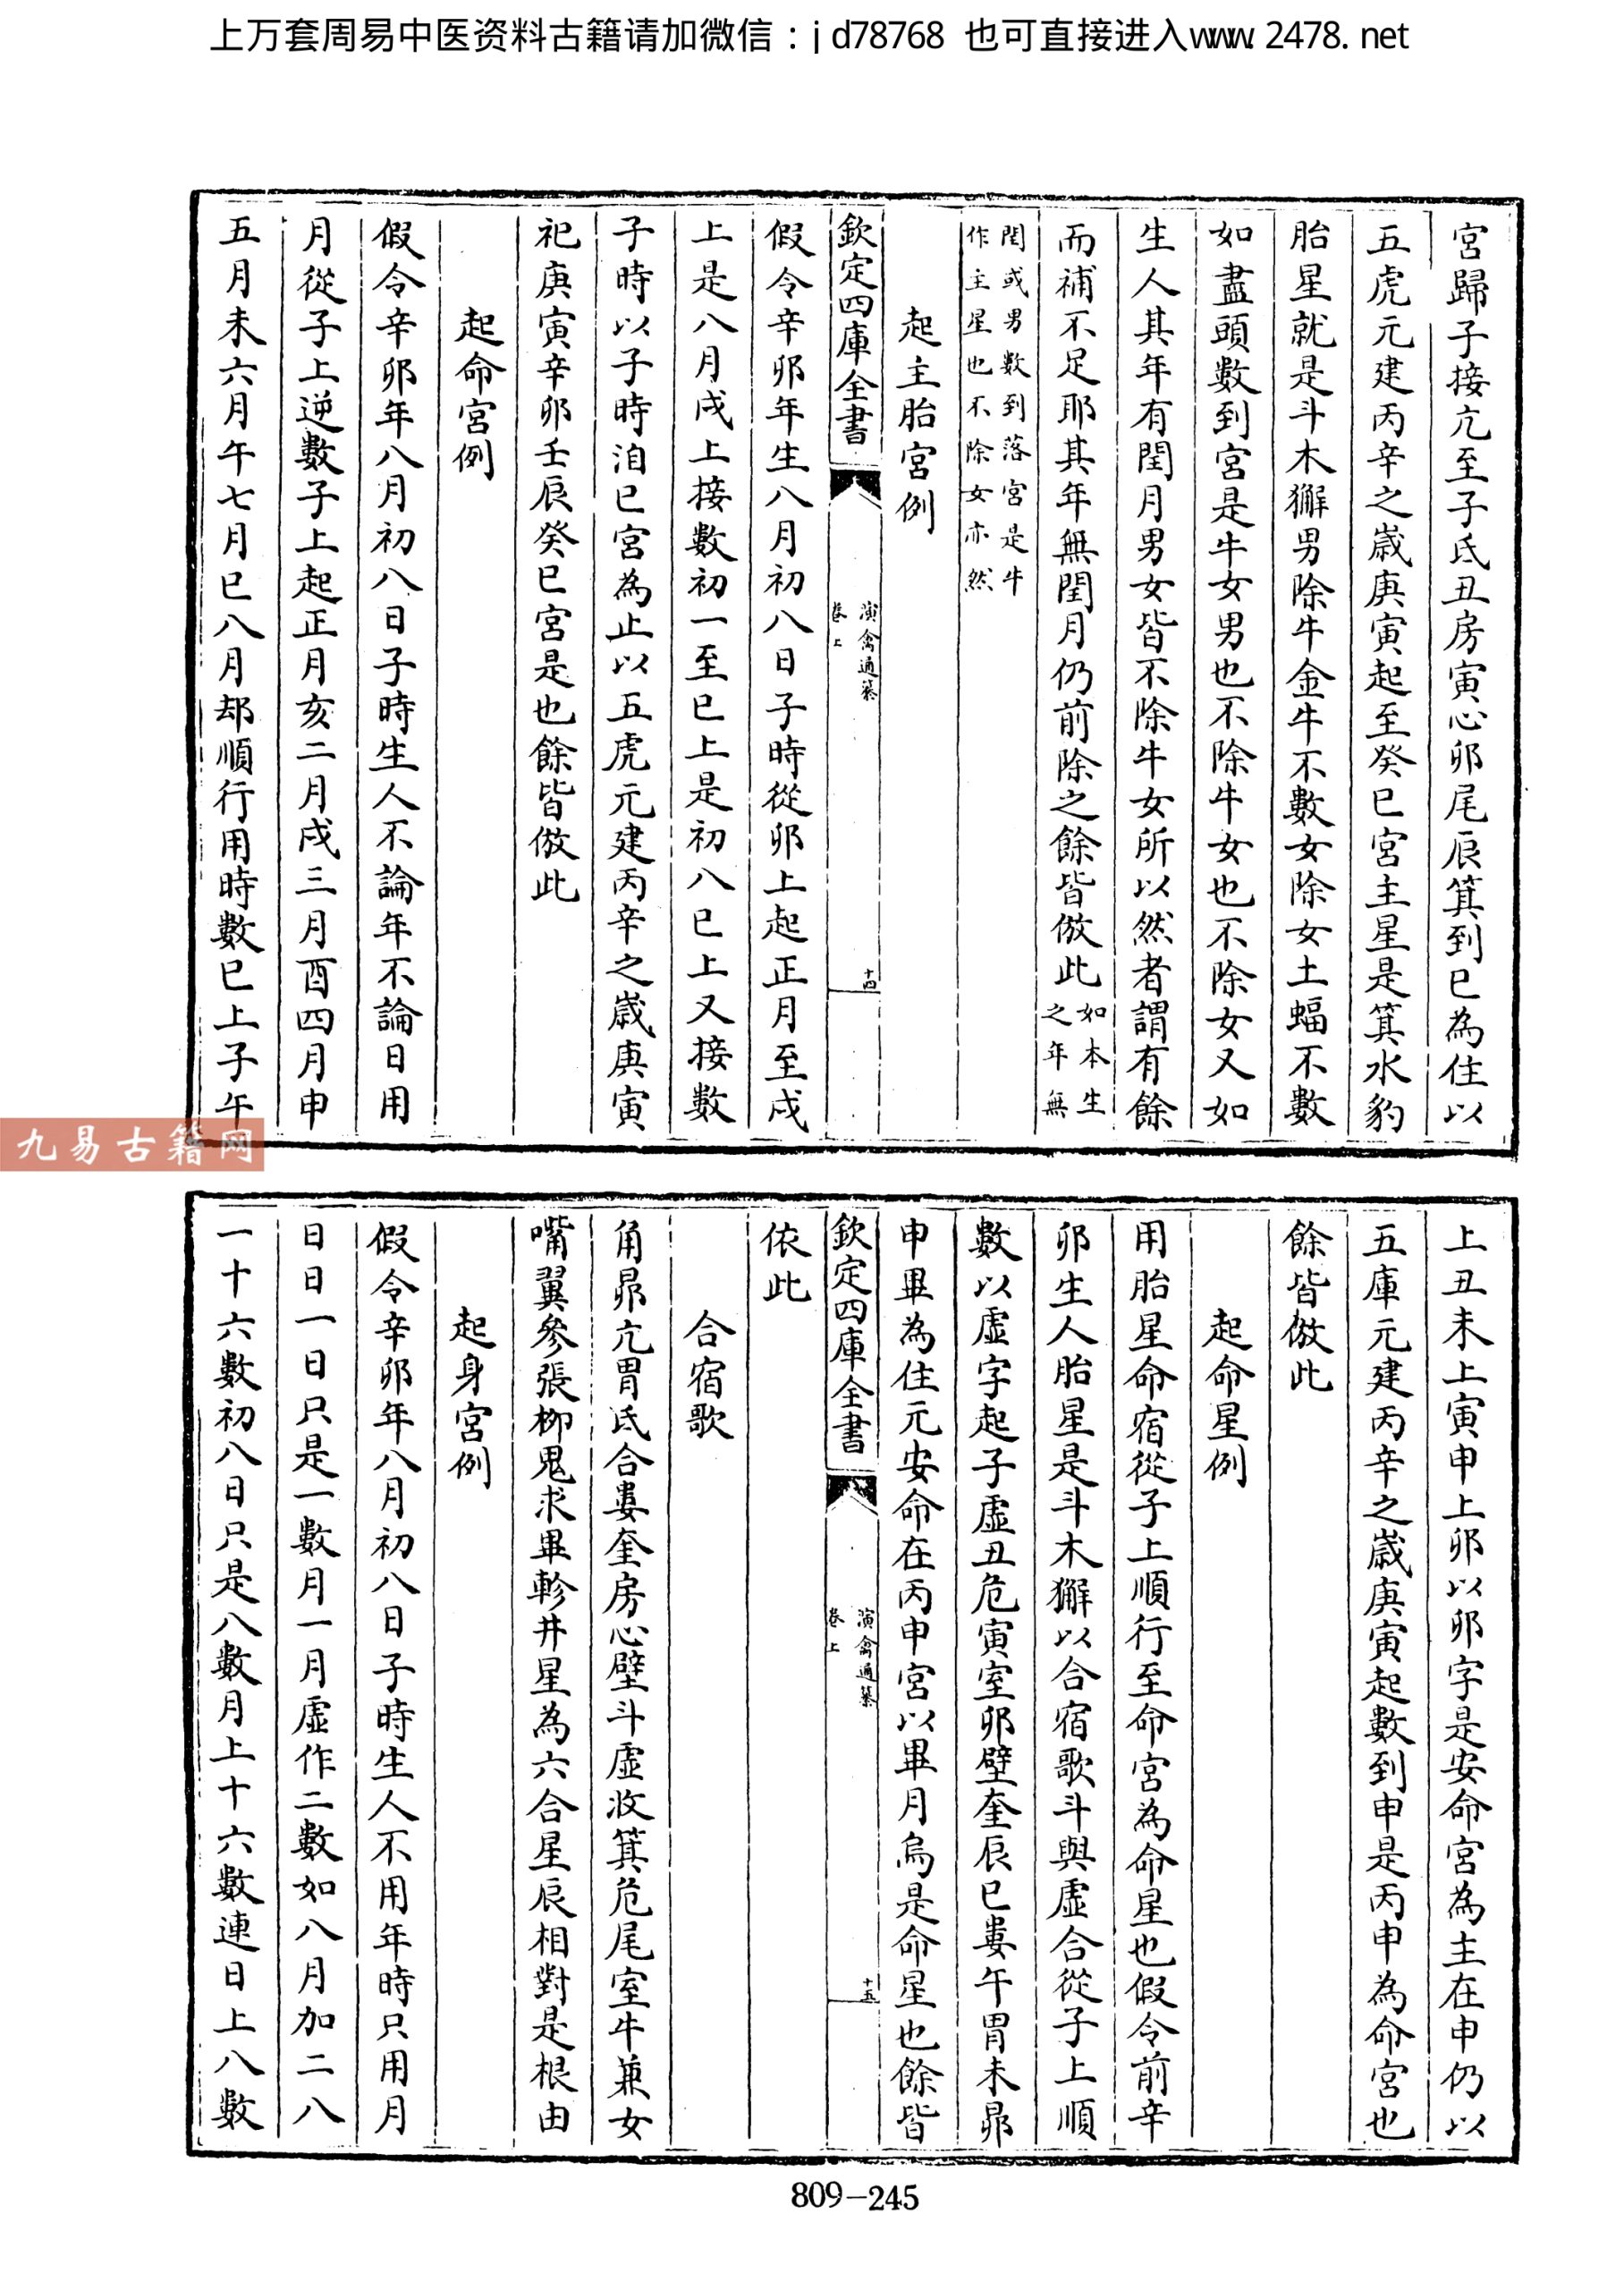 上万套周易中医资料古籍请加微信：jd78768 也可直接进入www.2478.net
宮歸子接亢至子氐丑房寅心卯尾辰箕到巳為住以
五虎元建丙辛之歲庚寅起至癸巳宮主星是箕水豹
胎星就是斗木獬男除牛金牛不數女除女土蝠不數
如盡頭數到宮是牛女男也不除牛女也不除女又如
生人其年有閏月男女皆不除牛女所以然者謂有餘
而補不足耶其年無閏月仍前除之餘皆倣此如本生
之年無
閏或男數到落宮是牛
作主星也不除女亦然
起主胎宮例
欽定四庫全書
演禽通纂
卷上
十四
假令辛卯年生八月初八日子時從卯上起正月至戌
上是八月戌上接數初一至巳上是初八巳上又接數
子時以子時泊巳宮為止以五虎元建丙辛之歲庚寅
祀庚寅辛卯壬辰癸巳宮是也餘皆倣此
起命宮例
假令辛卯年八月初八日子時生人不論年不論日用
月從子上逆數子上起正月亥二月戌三月酉四月申
五月未六月午七月巳八月却順行用時數巳上子午
九易古籍网
上丑未上寅申上卯以卯字是安命宮為主在申仍以
五庫元建丙辛之歲庚寅起數到申是丙申為命宮也
餘皆倣此
起命星例
用胎星命宿從子上順行至命宮為命星也假令前辛
卯生人胎星是斗木獬以合宿歌斗與虛合從子上順
數以虛字起子虛丑危寅室卯壁奎辰巳婁午胃未昴
申畢為住元安命在丙申宮以畢月烏是命星也餘皆
欽定四庫全書
演禽通纂
卷上
十五
依此
合宿歌
角昴亢胃氐合婁奎房心壁斗虛收箕危尾室牛兼女
嘴翼參張柳鬼求畢軫井星為六合星辰相對是根由
起身宮例
假令辛卯年八月初八日子時生人不用年時只用月
日日一日只是一數月一月虛作二數如八月加二八
一十六數初八日只是八數月上十六數連日上八數
809-245